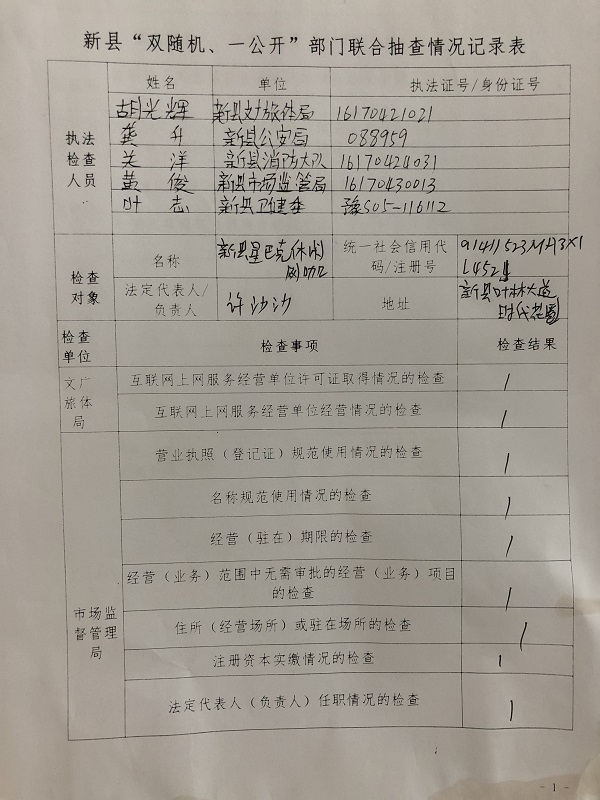 新县“双随机、一公开”部门联合抽查情况记录表
执法检查人员
姓名 单位 执法证号/身份证号
胡光辉 新县文旅体局 16170421021
龚升 新县公安局 088959
关洋 新县消防大队 16170424031
黄俊 新县市场监管局 16170430013
叶志 新县卫健委 豫S05-116112
检查对象
名称 新县星巴克休闲 统一社会信用代码/注册号 91411523MA3X1
L452
法定代表人/负责人 许沙沙 地址 新县叶林大道
时代花园
检查单位 检查事项 检查结果
文广旅体局
互联网上网服务经营单位许可证取得情况的检查 /
互联网上网服务经营单位经营情况的检查 /
市场监督管理局
营业执照（登记证）规范使用情况的检查 /
名称规范使用情况的检查 /
经营（驻在）期限的检查 /
经营（业务）范围中无需审批的经营（业务）项目
的检查 /
住所（经营场所）或驻在场所的检查 /
注册资本实缴情况的检查 /
法定代表人（负责人）任职情况的检查 /
- 1 -